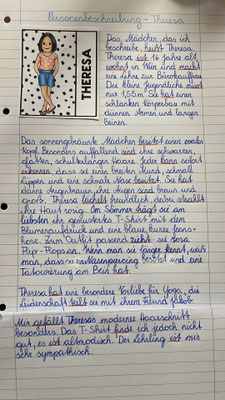 Personenbeschreibung - Theresa
THERESA
Das Mädchen, das ich
beschreibe, heißt Theresa.
Theresa ist 16 Jahre alt,
wohnt in Wien und macht
eine Lehre zur Bürokauffrau.
Die kleine Jugendliche misst
nur 1,55 m. Sie hat einen
schlanken Körperbau mit
dünnen Armen und langen
Beinen.
Das sonnengebräunte Mädchen besitzt einen ovalen
Kopf. Besonders auffallend sind ihre schwarzen,
glatten, schulterlangen Haare. Jeder kann sofort
erkennen, dass sie einen breiten Mund, schmale
Lippen und eine schmale Nase besitzt. Sie hat
dünne Augenbrauen, ihre Augen sind braun und
groß. Theresa lächelt freundlich, dafür strahlt
ihre Haut rosig. Im Sommer trägt sie am
liebsten ein gemustertes T-Shirt mit dem
Blumenaufdruck und eine blaue, kurze Jeans-
hose. Zum Outfit passend zieht sie rosa
Flip-Flops an. Wenn man sie länger kennt, weiß
man, dass sie ein Nasenpiercing besitzt und eine
Tätowierung am Bein hat.
Theresa hat eine besondere Vorliebe für Yoga, die
Leidenschaft teilt sie mit ihrem Freund Jakob.
Mir gefällt Theresas moderner Haarschnitt
besonders. Das T-Shirt finde ich jedoch nicht
gut, es ist altmodisch. Der Lehrling ist mir
sehr sympathisch.